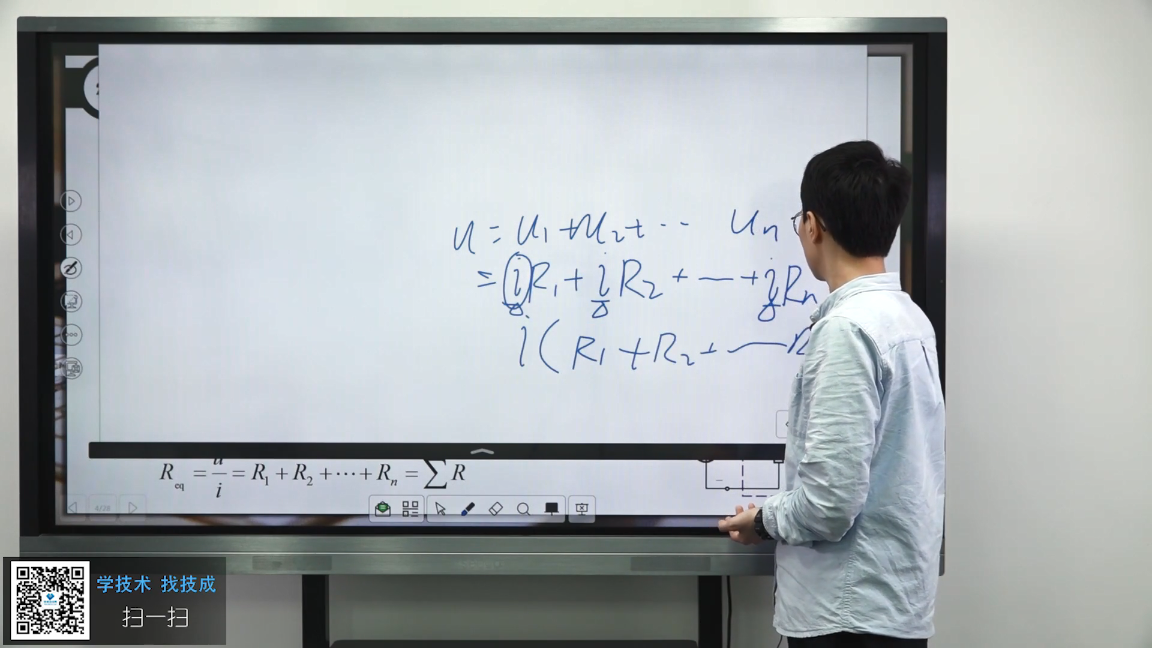 u = u₁ + u₂ + ··· uₙ
= iR₁ + iR₂ + — + iRₙ
i(R₁ + R₂ + —
R_eq = u/i = R₁ + R₂ + ··· + Rₙ = ∑R
4/28
学技术 找技成
扫一扫